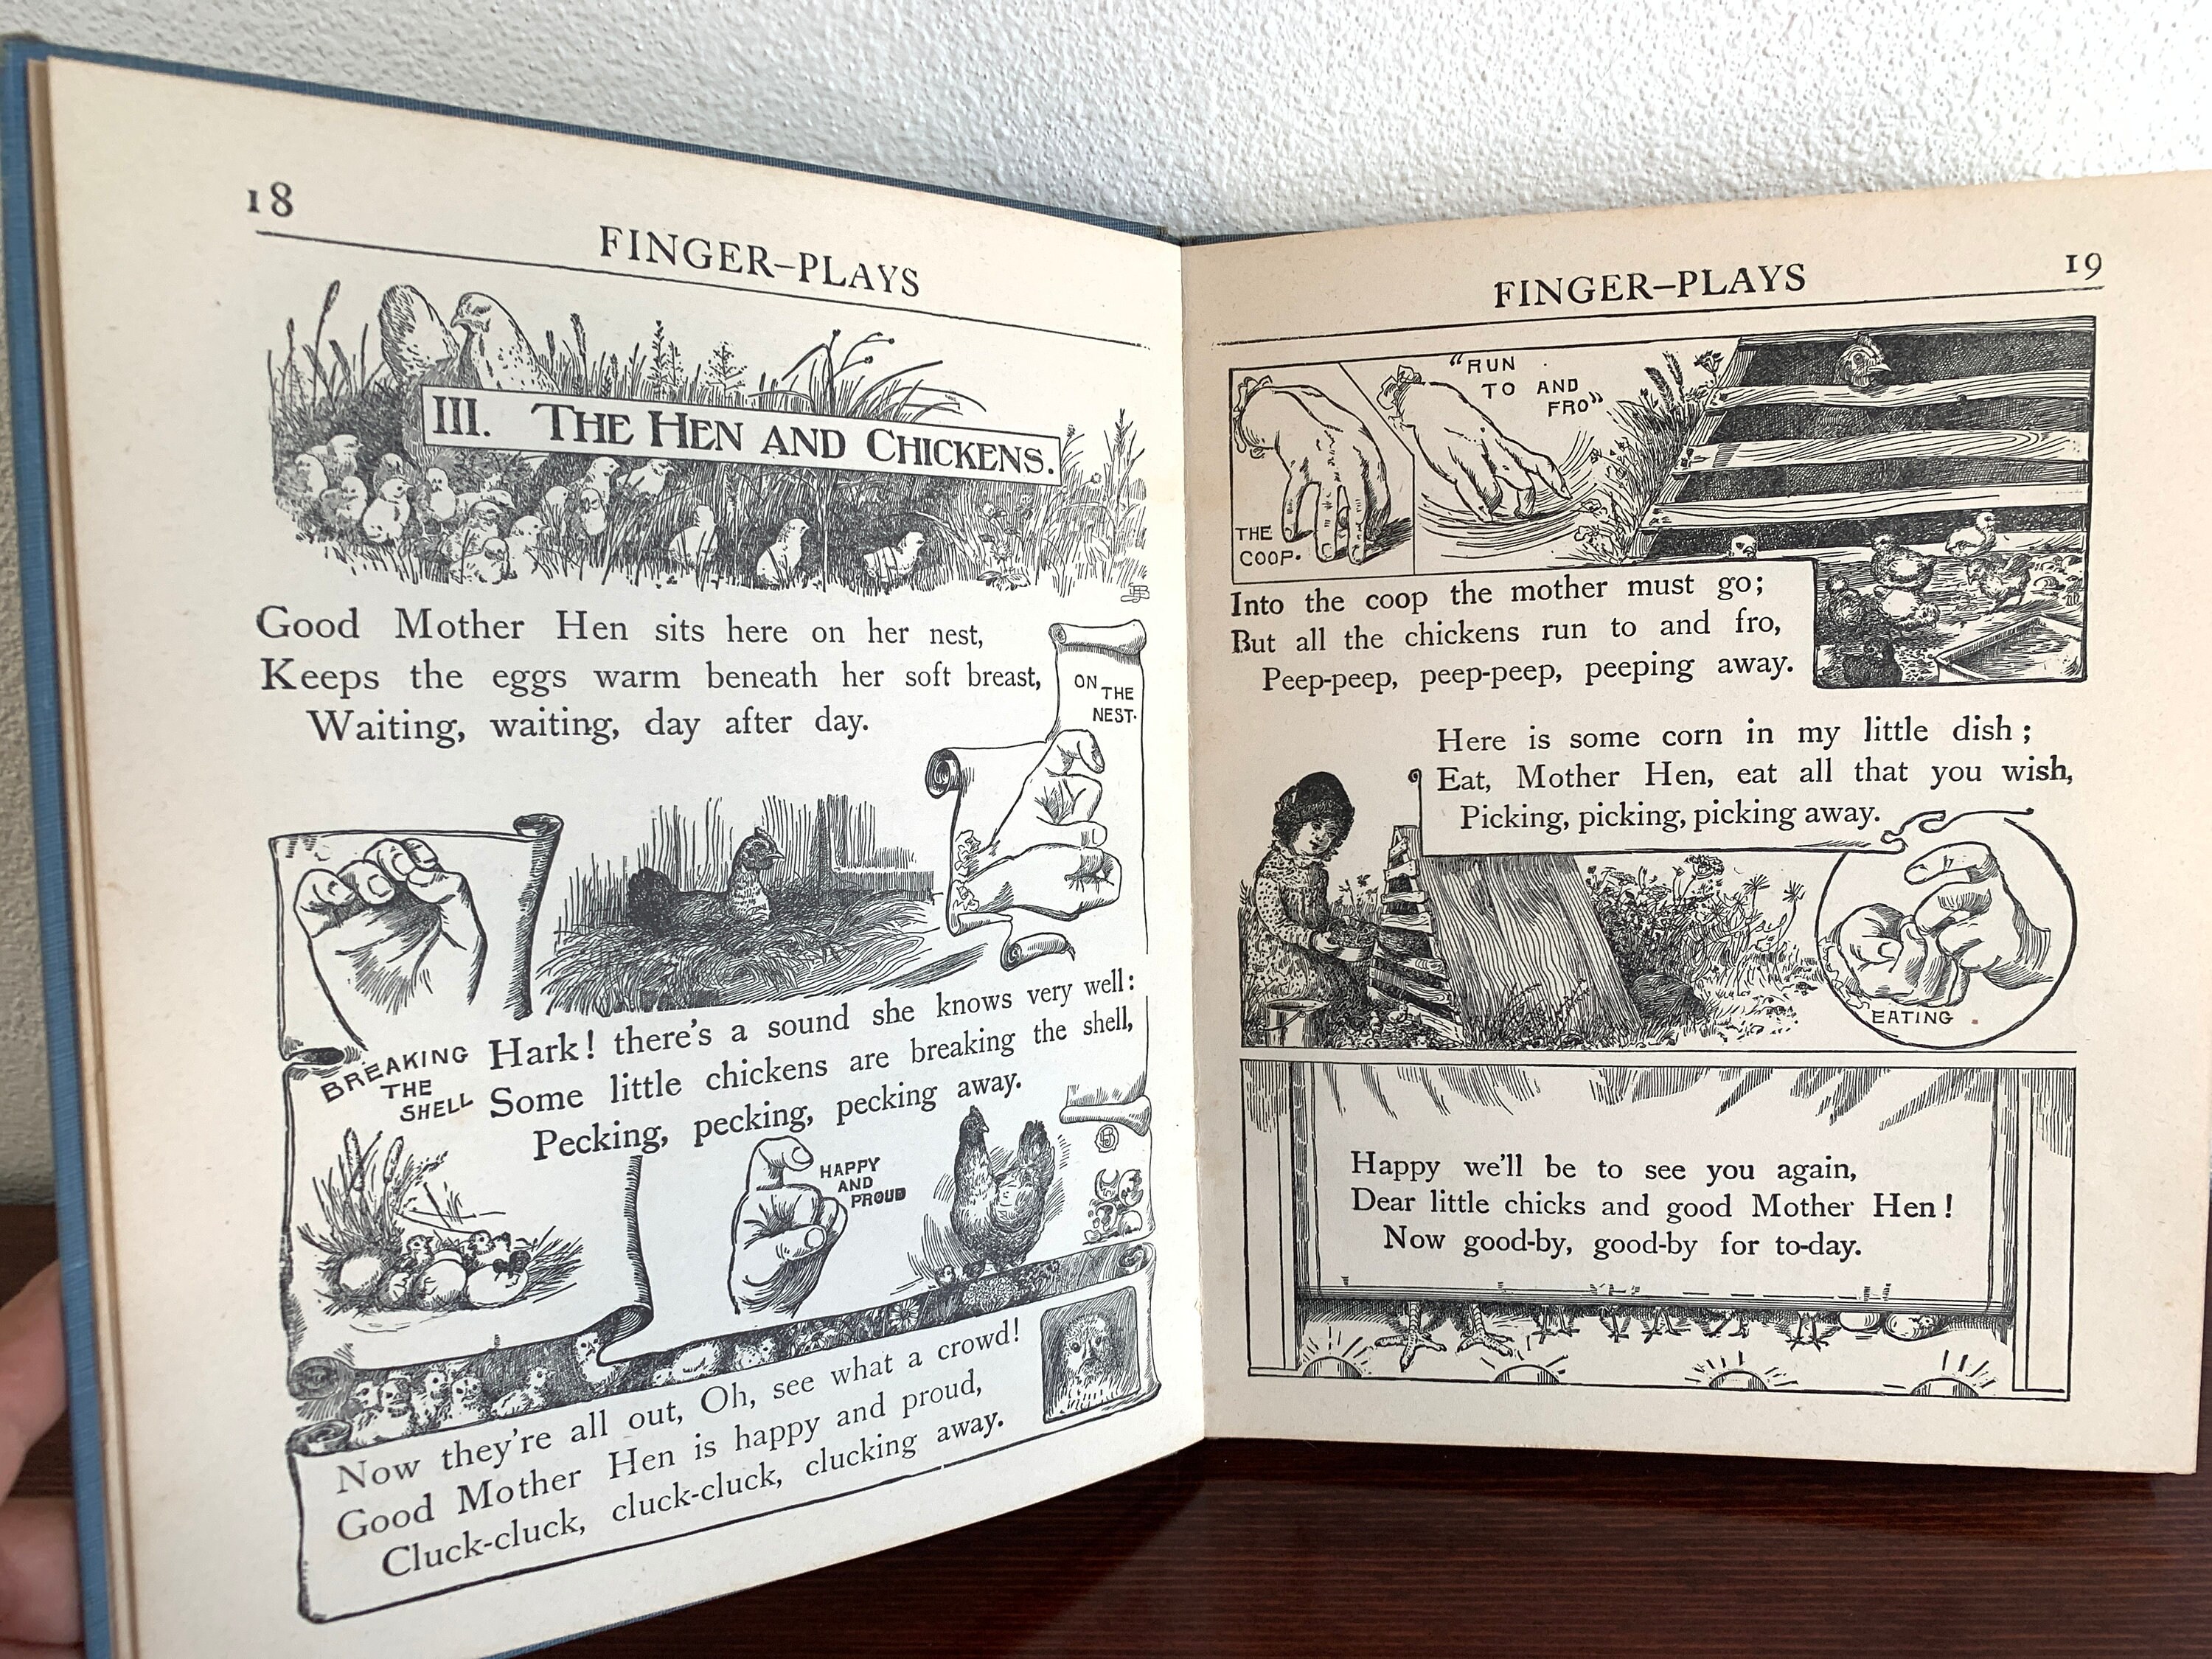 18
FINGER–PLAYS
III. THE HEN AND CHICKENS.
Good Mother Hen sits here on her nest,
Keeps the eggs warm beneath her soft breast,
Waiting, waiting, day after day.
ON THE
NEST.
BREAKING
THE
SHELL
Hark! there's a sound she knows very well:
Some little chickens are breaking the shell,
Pecking, pecking, pecking away.
HAPPY
AND
PROUD
Now they're all out, Oh, see what a crowd!
Good Mother Hen is happy and proud,
Cluck-cluck, cluck-cluck, clucking away.
FINGER–PLAYS
19
THE
COOP.
"RUN
TO AND
FRO"
Into the coop the mother must go;
But all the chickens run to and fro,
Peep-peep, peep-peep, peeping away.
Here is some corn in my little dish;
Eat, Mother Hen, eat all that you wish,
Picking, picking, picking away.
EATING
Happy we'll be to see you again,
Dear little chicks and good Mother Hen!
Now good-by, good-by for to-day.